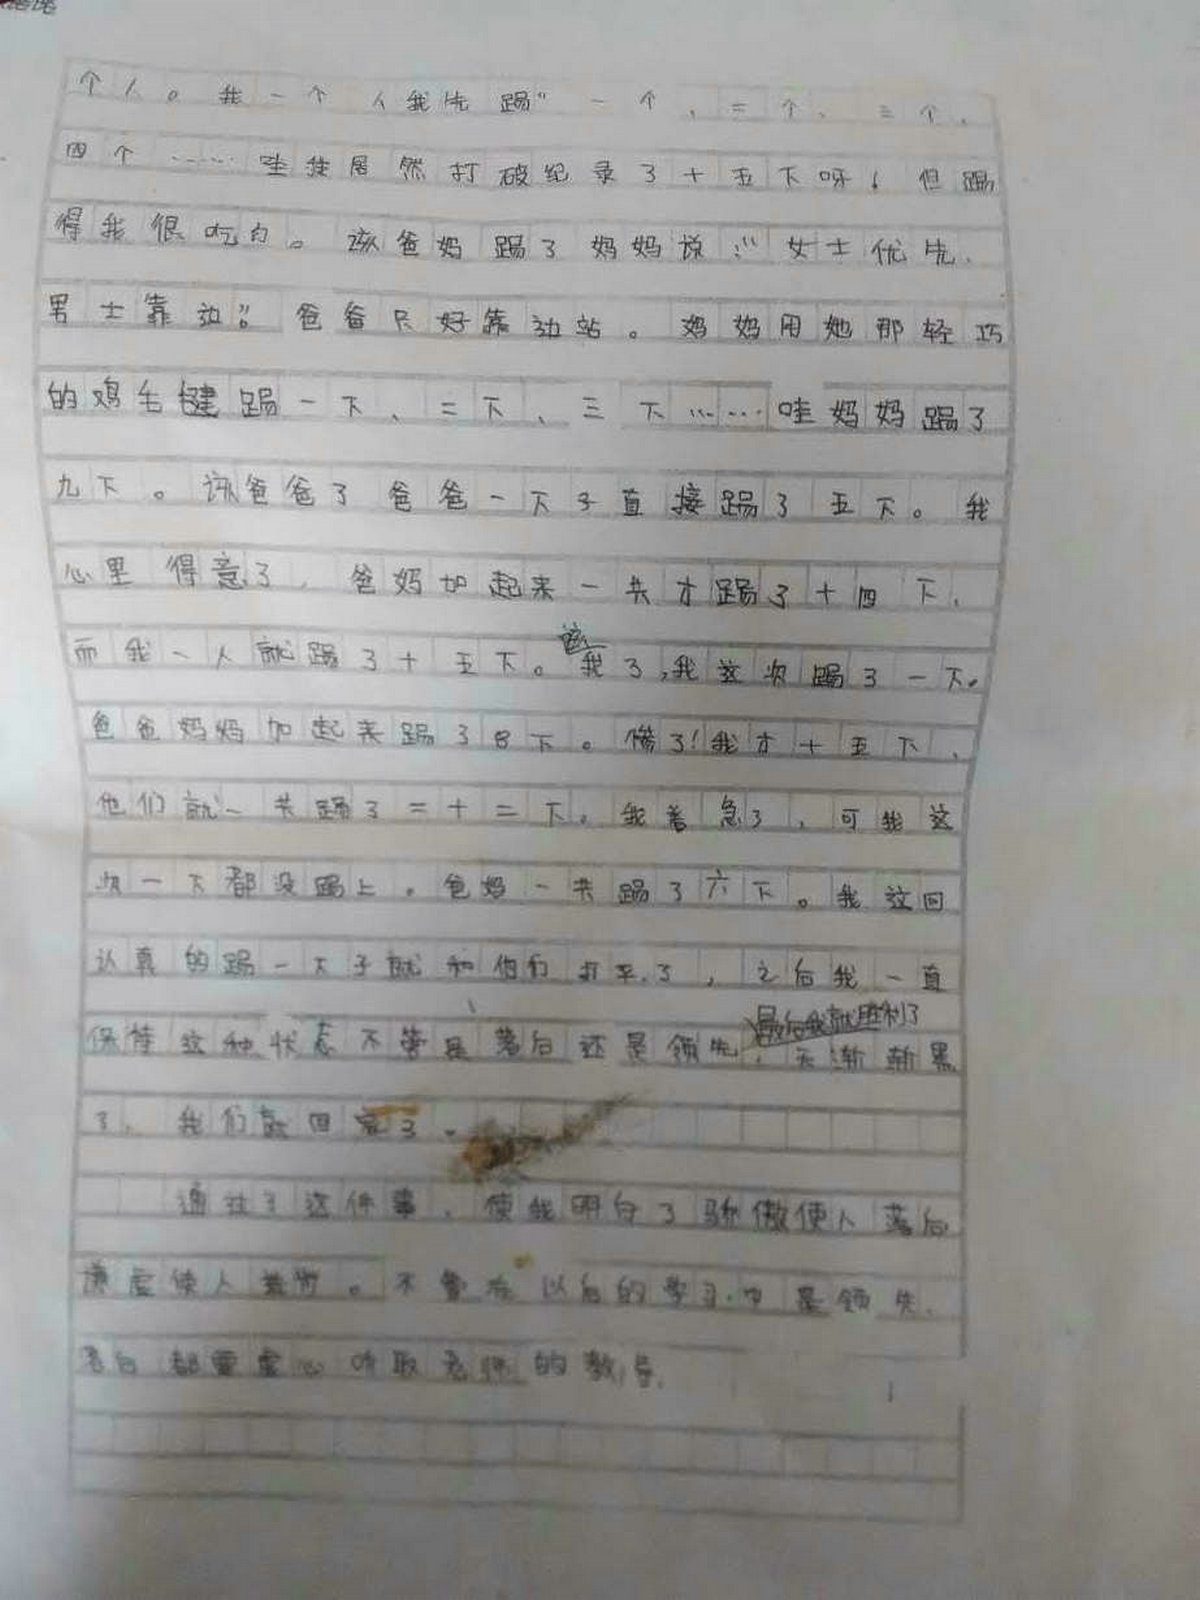 个人。我一个人我先踢“一个,二个、三个,
四个……哇我居然打破纪录了十五下呀!但踢
得我很吃力。该爸妈踢了妈妈说:“女士优先,
男士靠边”。爸爸只好靠边站。妈妈用她那轻巧
的鸡毛毽踢一下、二下、三下……哇妈妈踢了
九下。该爸爸了爸爸一下子直接踢了五下。我
心里得意了,爸妈加起来一共才踢了十四下,
而我一人就踢了十五下。该我了,我这次踢了一下。
爸爸妈妈加起来踢了8下。惨了!我才十五下,
他们就一共踢了二十二下。我着急了,可我这
次一下都没踢上。爸妈一共踢了六下。我这回
认真的踢一下子就和他们打平了,之后我一直
保持这种状态不管是落后还是领先,最后我就胜利了天渐渐黑
了,我们就回家了。
通过了这件事,使我明白了骄傲使人落后
谦虚使人进步。不管在以后的学习中是领先,
落后都要虚心听取老师的教导。